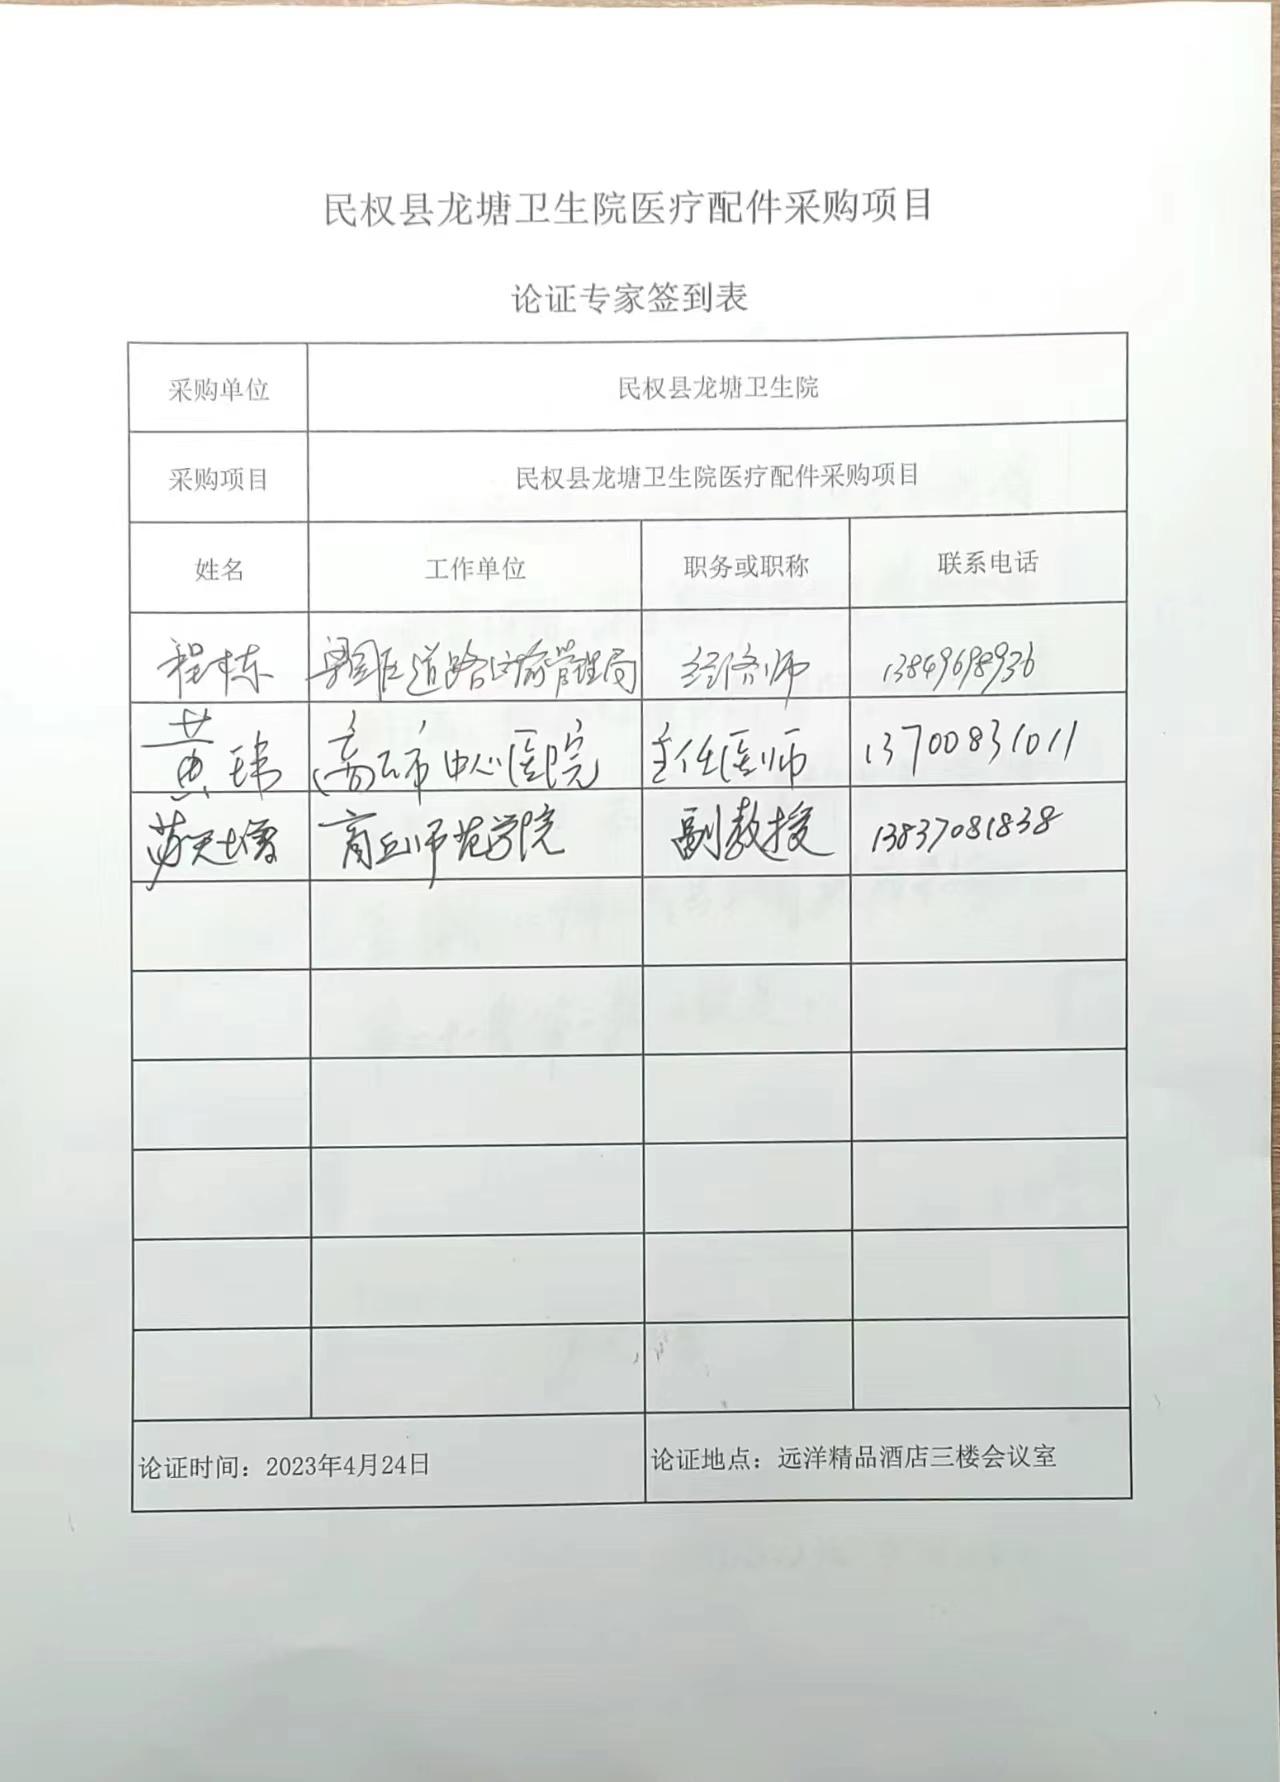 民权县龙塘卫生院医疗配件采购项目
论证专家签到表
采购单位 民权县龙塘卫生院
采购项目 民权县龙塘卫生院医疗配件采购项目
姓名 工作单位 职务或职称 联系电话
程栋 道路 管理局 经济师 13849698936
黄玮 市中心医院 主任医师 13700831011
苏 商丘师范学院 副教授 13837081838
论证时间：2023年4月24日 论证地点：远洋精品酒店三楼会议室